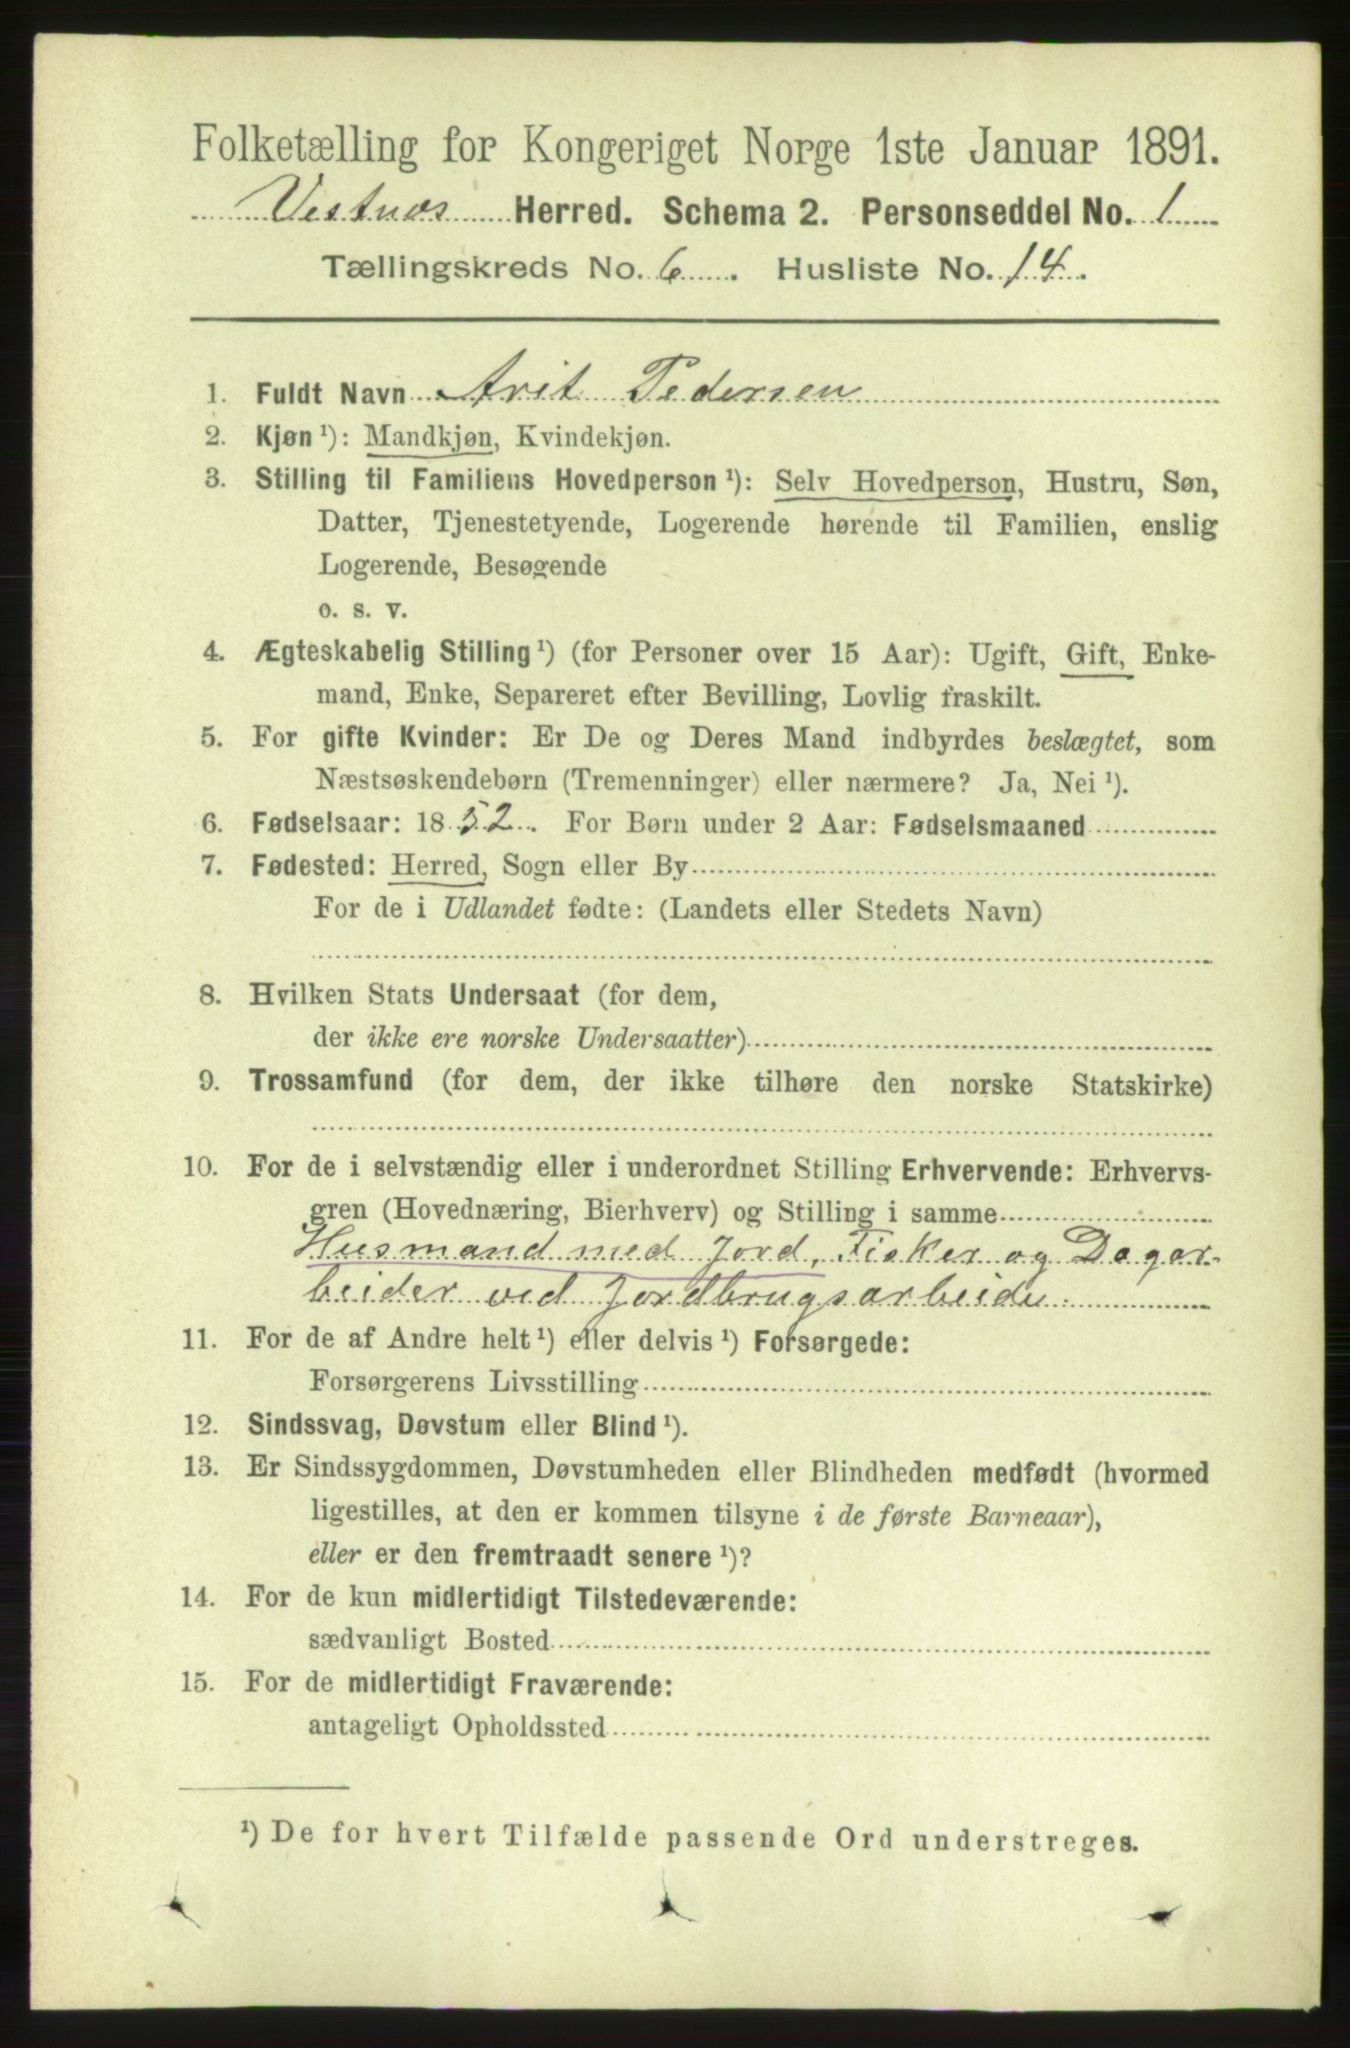 Folketælling for Kongeriget Norge 1ste Januar 1891.
Vestnæs Herred. Schema 2. Personseddel No. 1
Tællingskreds No. 6. Husliste No. 14.
1. Fuldt Navn Arit Pedersen
2. Kjøn ¹): Mandkjøn, Kvindekjøn.
3. Stilling til Familiens Hovedperson ¹): Selv Hovedperson, Hustru, Søn,
Datter, Tjenestetyende, Logerende hørende til Familien, enslig
Logerende, Besøgende
o. s. v.
4. Ægteskabelig Stilling ¹) (for Personer over 15 Aar): Ugift, Gift, Enke-
mand, Enke, Separeret efter Bevilling, Lovlig fraskilt.
5. For gifte Kvinder: Er De og Deres Mand indbyrdes beslægtet, som
Næstsøskendebørn (Tremenninger) eller nærmere? Ja, Nei ¹).
6. Fødselsaar: 1852. For Børn under 2 Aar: Fødselsmaaned
7. Fødested: Herred, Sogn eller By
For de i Udlandet fødte: (Landets eller Stedets Navn)
8. Hvilken Stats Undersaat (for dem,
der ikke ere norske Undersaatter)
9. Trossamfund (for dem, der ikke tilhøre den norske Statskirke)
10. For de i selvstændig eller i underordnet Stilling Erhvervende: Erhvervs-
gren (Hovednæring, Bierhverv) og Stilling i samme
Husmand med Jord, Fisker og Dagar-
beider ved Jordbrugsarbeide.
11. For de af Andre helt ¹) eller delvis ¹) Forsørgede:
Forsørgerens Livsstilling
12. Sindssvag, Døvstum eller Blind ¹).
13. Er Sindssygdommen, Døvstumheden eller Blindheden medfødt (hvormed
ligestilles, at den er kommen tilsyne i de første Barneaar),
eller er den fremtraadt senere ¹)?
14. For de kun midlertidigt Tilstedeværende:
sædvanligt Bosted
15. For de midlertidigt Fraværende:
antageligt Opholdssted
¹) De for hvert Tilfælde passende Ord understreges.